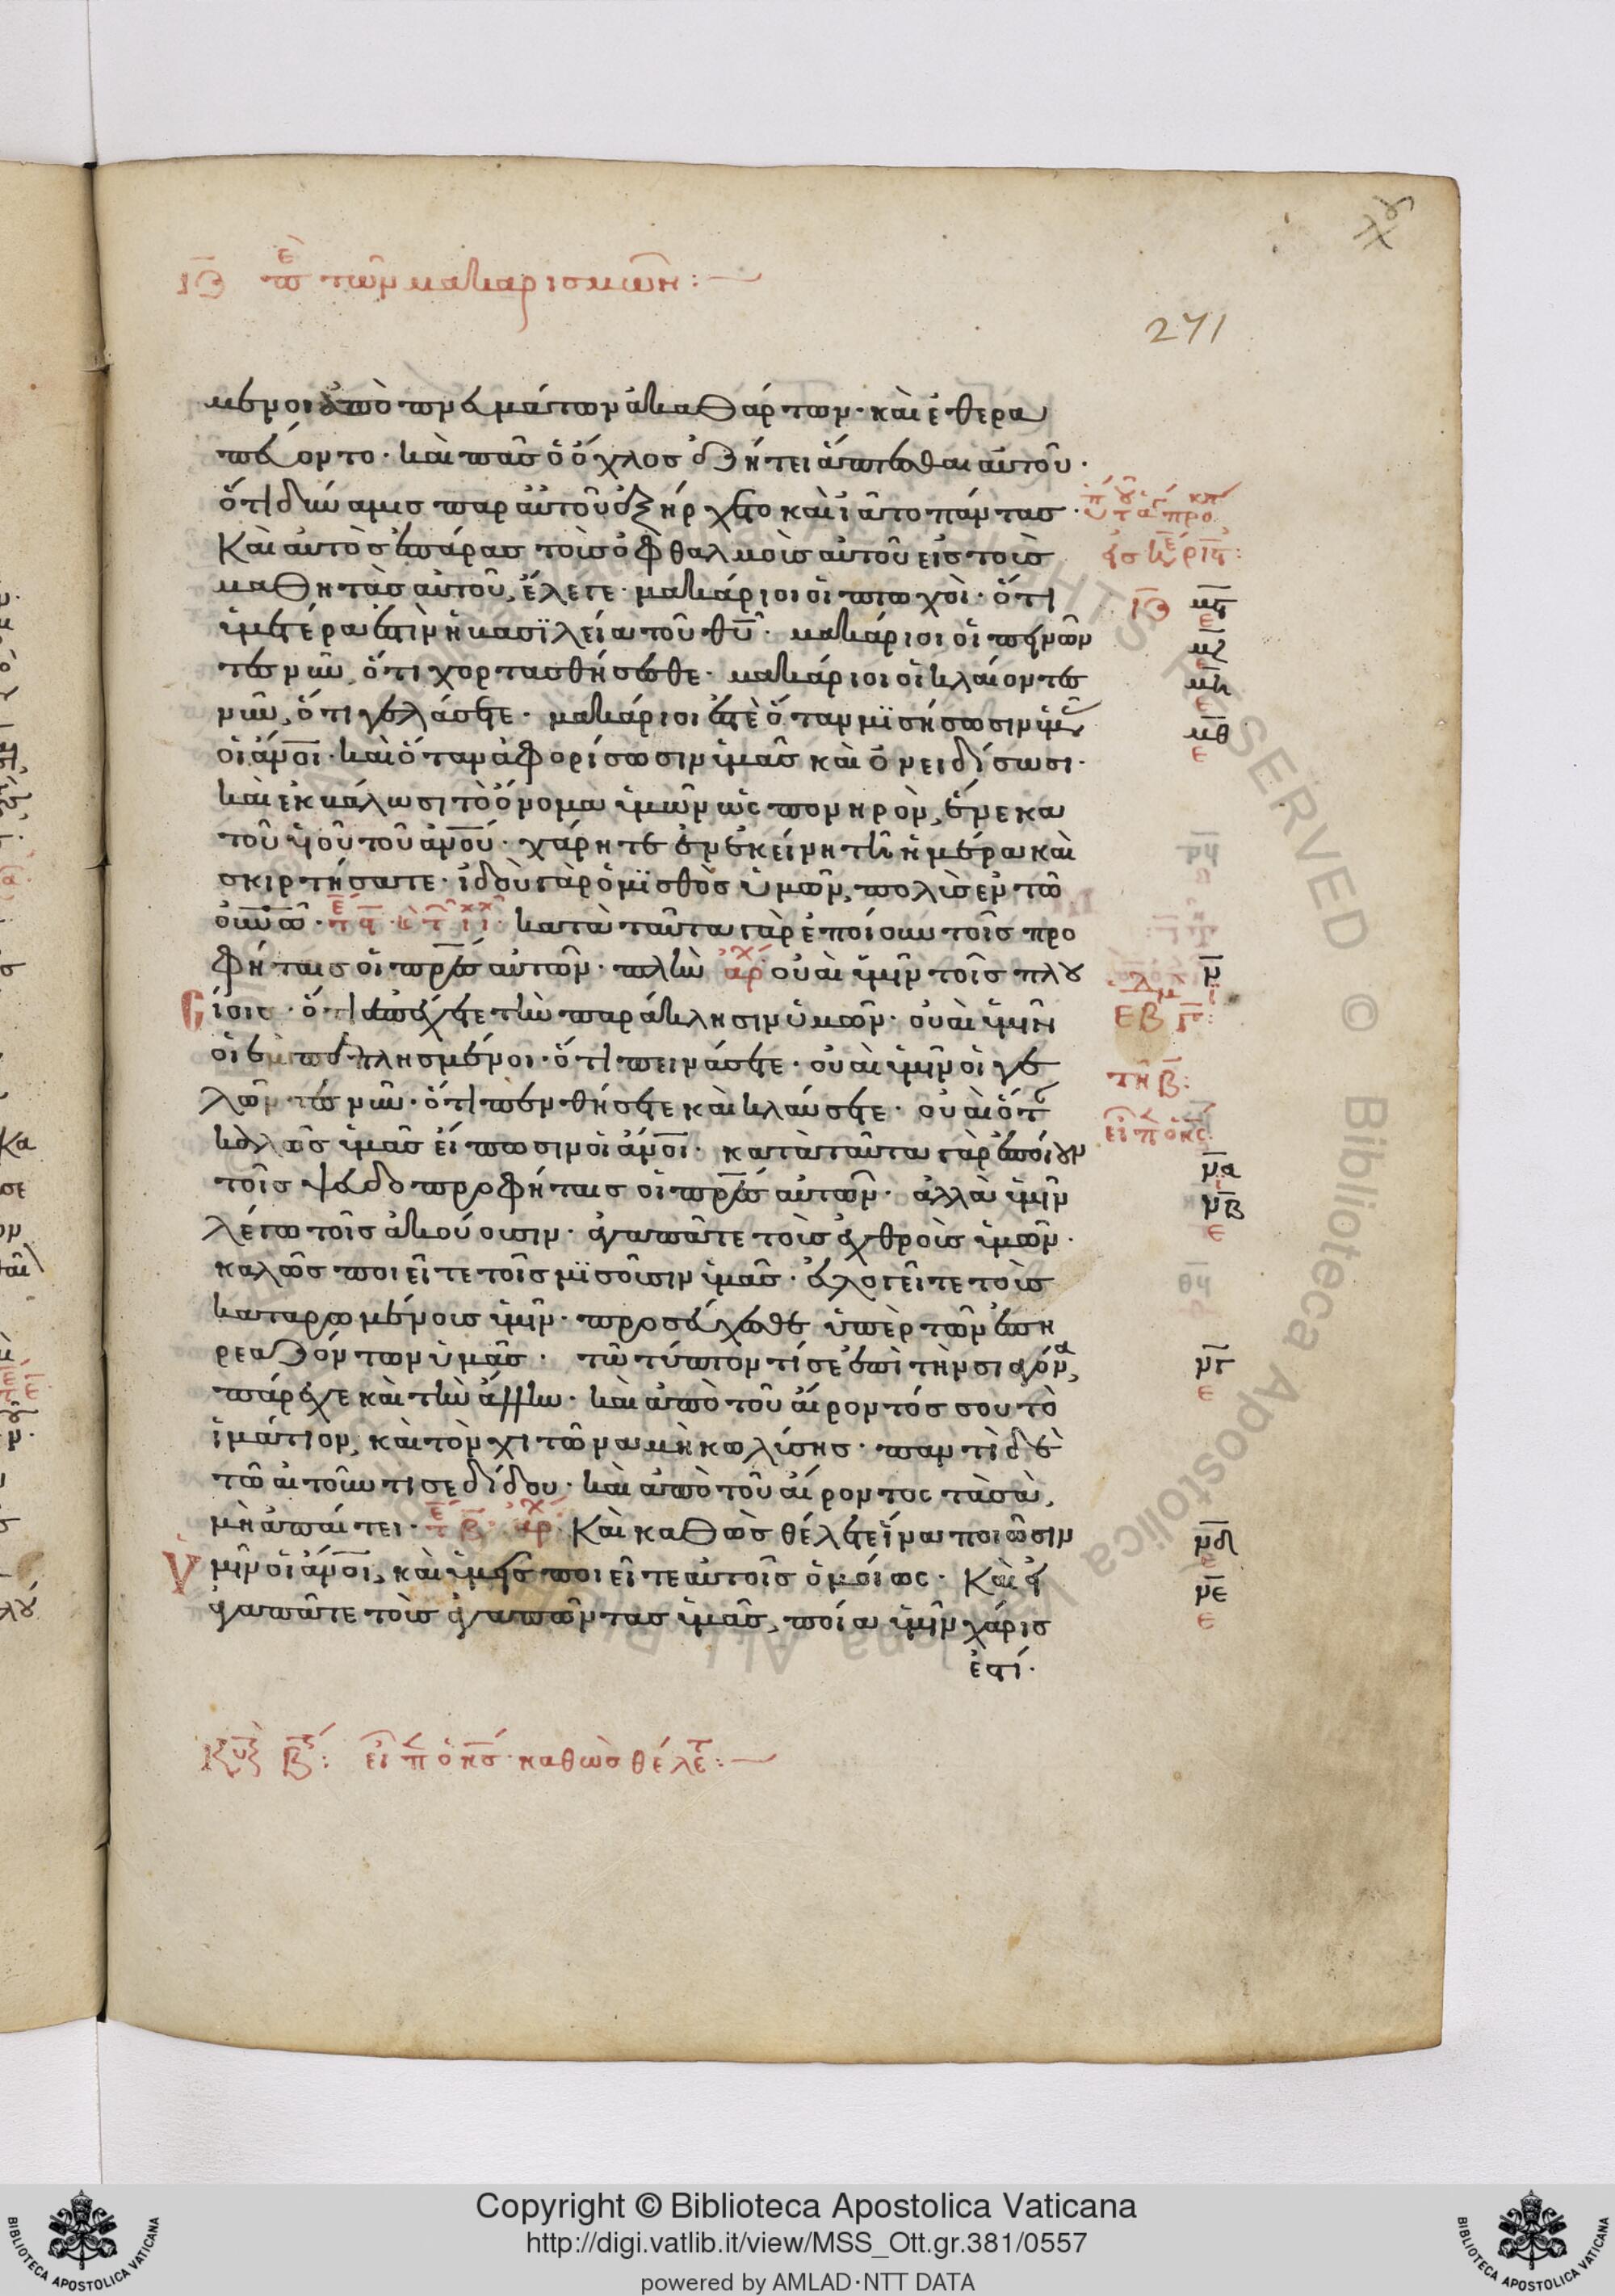 ιθ πε τῶν μακαρισμῶν:
271
μενοι ἀπὸ πνευμάτων ἀκαθάρτων· καὶ ἐθερα
πεύοντο· καὶ πᾶς ὁ ὄχλος ἐζήτει ἅπτεσθαι αὐτοῦ·
ὅτι δύναμις παρ αὐτοῦ ἐξήρχετο καὶ ἰᾶτο πάντας·
Καὶ αὐτὸς ἐπάρας τοὺς ὀφθαλμοὺς αὐτοῦ εἰς τοὺς
μαθητὰς αὐτοῦ, ἔλεγε· μακάριοι οἱ πτωχοὶ· ὅτι
ὑμετέρα ἐστὶν ἡ βασϊλεία τοῦ θυ· μακάριοι οἱ πεινῶν
τες νῦν, ὅτι χορτασθήσεσθε· μακάριοι οἱ κλαίοντες
νῦν, ὅτι γελάσετε· μακάριοι ἐστὲ ὅταν μϊσήσωσιν ὑμᾶς
οἱ ἄνοι· καὶ ὅταν ἀφορίσωσιν ὑμᾶς καὶ ὀνειδίσωσι·
καὶ ἐκβάλωσι τὸ ὄνομα ὑμῶν ὡς πονηρὸν, ἕνεκα
τοῦ υἱοῦ τοῦ ἀνου· χάρητε ἐν ἐκείνη τῆ ἡμέρα καὶ
σκιρτήσατε· ἰδοὺ γὰρ ὁ μϊσθὸς ὑμῶν, πολὺς ἐν τῶ
οὐνῶ· κατὰ ταῦτα γὰρ ἐποίουν τοῖς προ
φήταις οἱ πρες αὐτῶν· πλὴν ἀρχ οὐαὶ ὑμῖν τοῖς πλου
σίοις· ὅτι ἀπέχετε τὴν παράκλησιν ὑμῶν· οὐαὶ ὑμῖν
οἱ ἐμπεπλησμένοι· ὅτι πεινάσετε· οὐαὶ ὑμῖν οἱ γε
λῶντες νῦν· ὅτι πενθήσετε καὶ κλαύσετε· οὐαὶ ὅταν
καλῶς ὑμᾶς εἴπωσιν οἱ ἄνοι· κατὰ ταῦτα γὰρ ἐποίουν
τοῖς ψευδοπροφήταις οἱ πρες αὐτῶν· ἀλλὰ ὑμῖν
λέγω τοῖς ἀκούουσιν· ἀγαπᾶτε τοὺς ἐχθροὺς ὑμῶν·
καλῶς ποιεῖτε τοῖς μϊσοῦσιν ὑμᾶς· εὐλογεῖτε τοὺς
καταρωμένους ὑμῖν· προσεύχεσθε ὑπὲρ τῶν ἐπη
ρεαζόντων ὑμᾶς· τῶ τύπτοντί σε ἐπὶ τὴν σιαγόνα,
πάρεχε καὶ τὴν ἄλλην· καὶ ἀπὸ τοῦ αἴροντός σου τὸ
ἱμάτιον, καὶ τὸν χιτῶνα μὴ κωλύσης· παντὶ δὲ
τῶ αἰτοῦντί σε δίδου· καὶ ἀπὸ τοῦ αἴροντος τὰ σὰ,
μὴ ἀπαίτει· Καὶ καθὼς θέλετε ἵνα ποιῶσιν
ὑμῖν οἱ ἄνοι, καὶ ὑμεῖς ποιεῖτε αὐτοῖς ὁμοίως· Καὶ εἰ
ἀγαπᾶτε τοὺς ἀγαπῶντας ὑμᾶς, ποία ὑμῖν χάρις
ἐστί·
εἶπ ὁ κς· καθὼς θέλετ:
ιθ
μς
ε
μζ
μη
ε
μθ
ε
ν
ι
τῆ β:
εἶπ ὁ κς
να
ι
νβ
ε
νγ
ε
νδ
ε
νε
ε
Copyright © Biblioteca Apostolica Vaticana
http://digi.vatlib.it/view/MSS_Ott.gr.381/0557
powered by AMLAD·NTT DATA
BIBLIOTECA APOSTOLICA VATICANA
BIBLIOTECA APOSTOLICA VATICANA